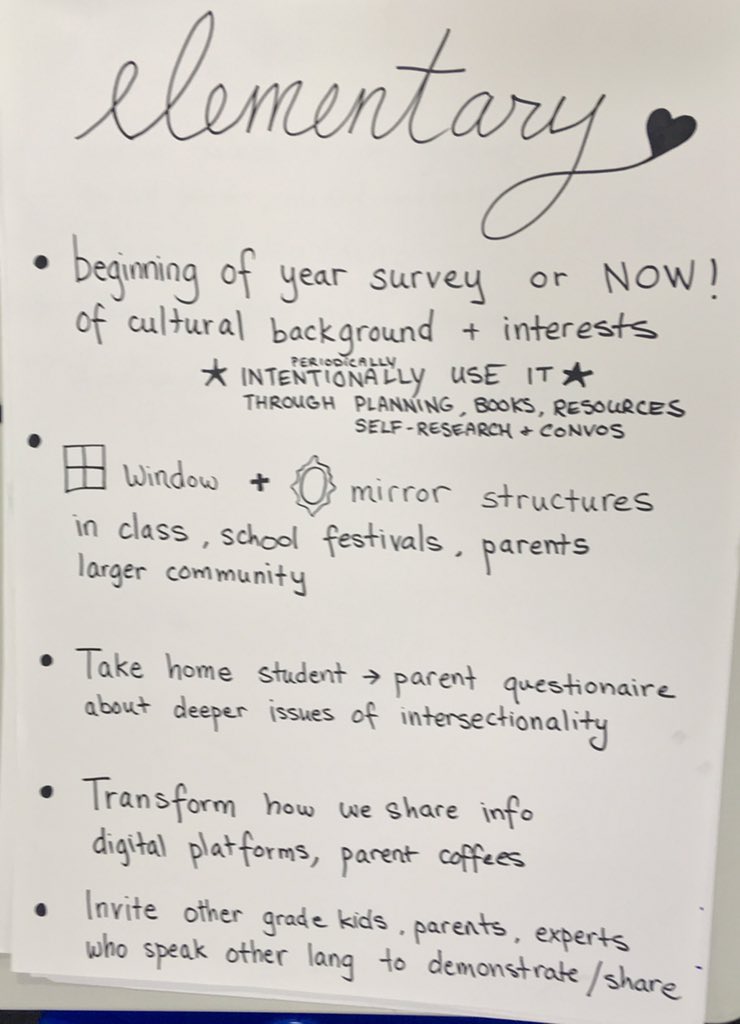 elementary
• beginning of year survey or NOW!
of cultural background + interests
PERIODICALLY
★ INTENTIONALLY USE IT ★
THROUGH PLANNING, BOOKS, RESOURCES
SELF-RESEARCH + CONVOS
• Window + mirror structures
in class, school festivals, parents
larger community
• Take home student → parent questionaire
about deeper issues of intersectionality
• Transform how we share info
digital platforms, parent coffees
• Invite other grade kids, parents, experts
who speak other lang to demonstrate/share